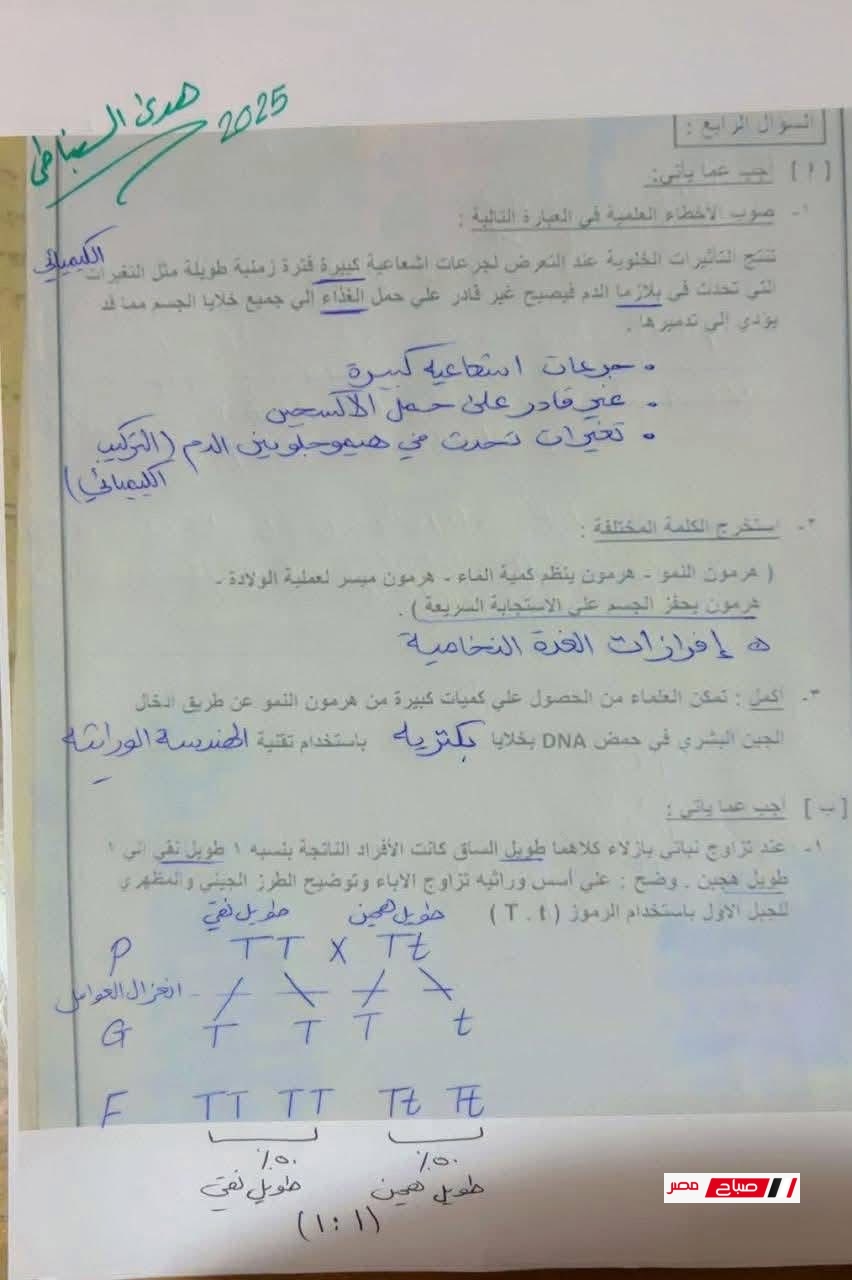 هدى السنباطي
2025
السؤال الرابع :
[ أ ] أجب عما يأتي:
١- صوب الأخطاء العلمية في العبارة التالية :
تنتج التأثيرات الخلوية عند التعرض لجرعات اشعاعية كبيرة فترة زمنية طويلة مثل التغيرات
الكيميائي
التي تحدث في بلازما الدم فيصبح غير قادر علي حمل الغذاء الي جميع خلايا الجسم مما قد
يؤدي الي تدميرها .
• جرعات اشعاعية كبيرة
• غير قادر على حمل الأكسجين
• تغيرات تحدث في هيموجلوبين الدم (التركيب
الكيميائي)
٢- استخرج الكلمة المختلفة :
( هرمون النمو - هرمون ينظم كمية الماء - هرمون ميسر لعملية الولادة -
هرمون يحفز الجسم علي الاستجابة السريعة ) .
إفرازات الغدة النخامية
٣- أكمل : تمكن العلماء من الحصول علي كميات كبيرة من هرمون النمو عن طريق ادخال
الجين البشري في حمض DNA بخلايا بكتريه باستخدام تقنية الهندسة الوراثيه
[ ب ] أجب عما يأتي :
١- عند تزاوج نباتي بازلاء كلاهما طويل الساق كانت الأفراد الناتجة بنسبه ١ طويل نقي الي ١
طويل هجين . وضح : علي أسس وراثيه تزاوج الاباء وتوضيح الطرز الجيني والمظهري
للجيل الاول باستخدام الرموز ( T . t )
طويل نقي طويل هجين
P TT X Tt
انعزال العوامل
G T T T t
F TT TT Tt Tt
٥٠٪ ٥٠٪
طويل نقي طويل هجين
(١:١)
صباح مصر